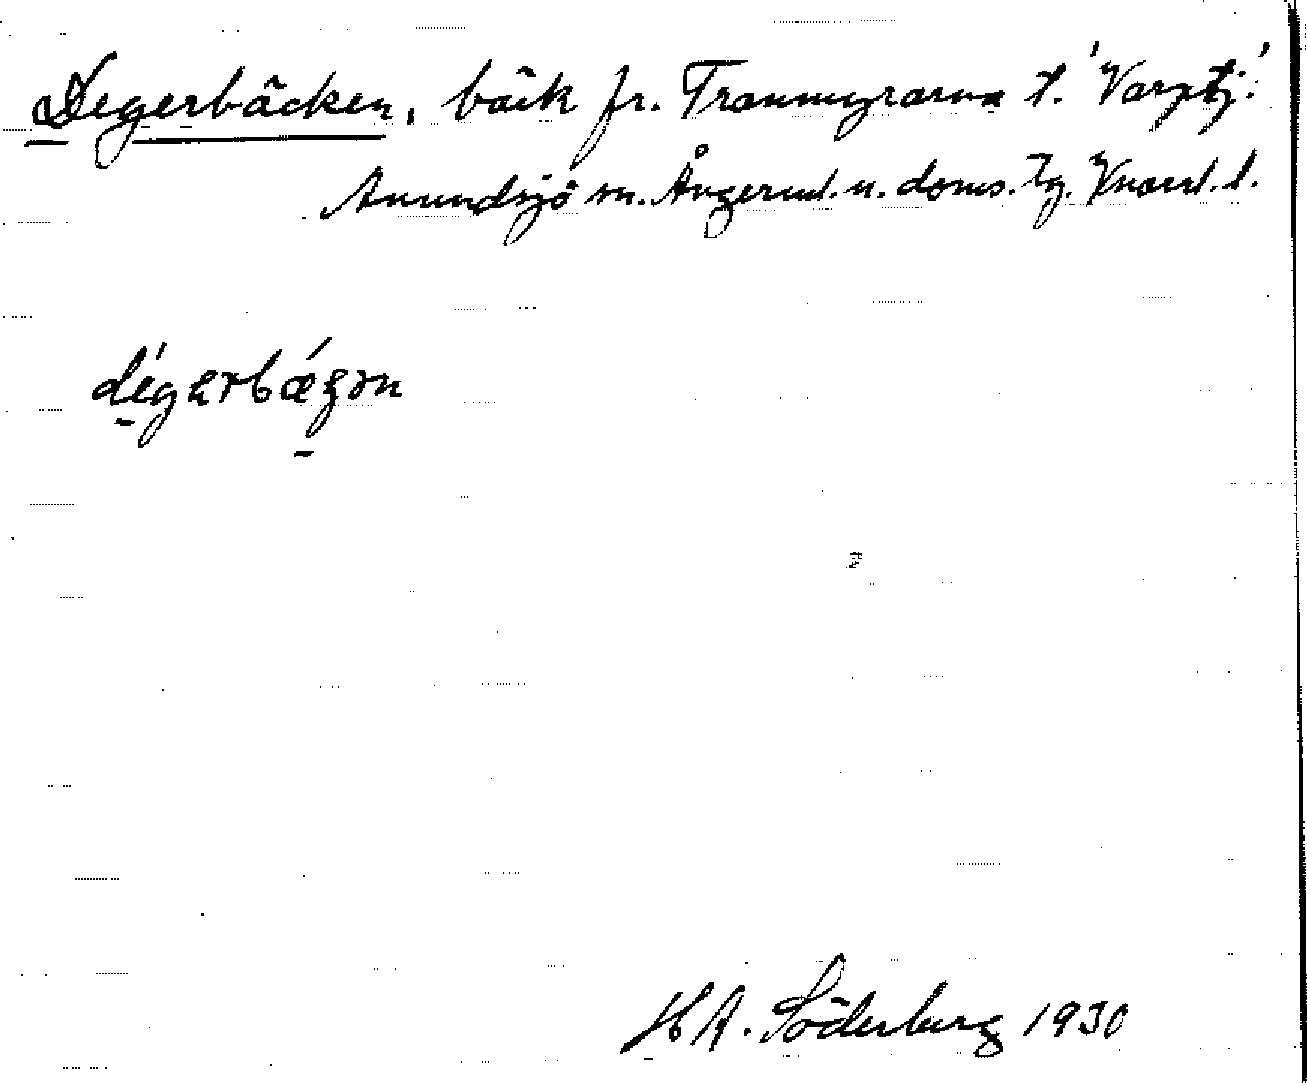 Degerbäcken, bäck fr. Tranmyrarna t. 'Varptj.'
Anundsjö sn. Ångerml. n. doms. Tg. Vnorrl. l.
H A. Söderberg 1930